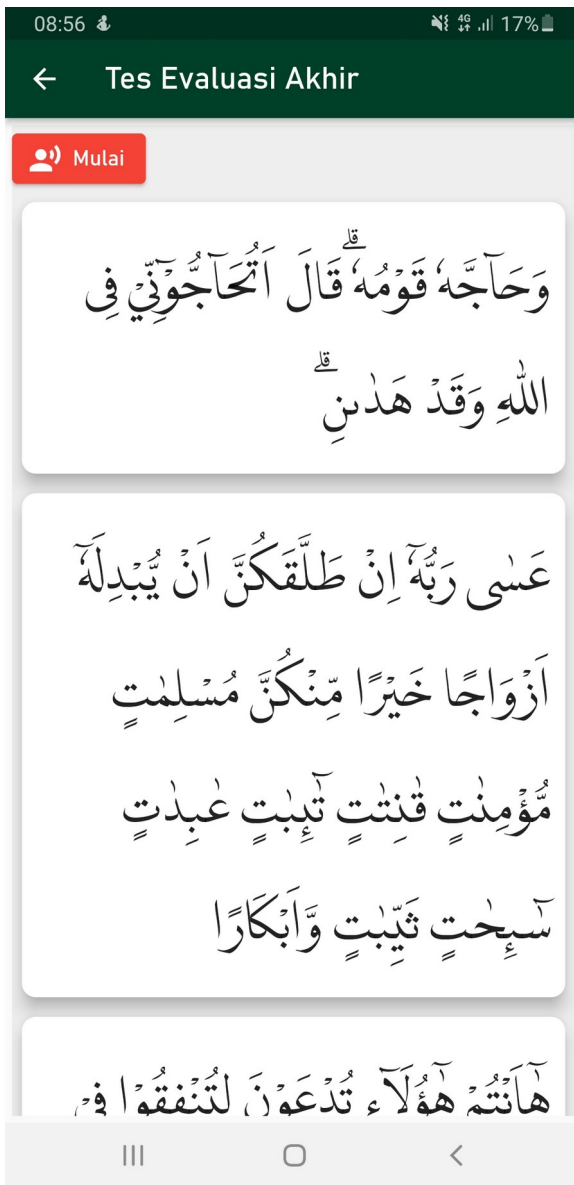 08:56 4G 17%
Tes Evaluasi Akhir
Mulai
وَحَاۤجَّهٗ قَوْمُهٗ ۗقَالَ اَتُحَاۤجُّوْۤنِّيْ فِى
اللّٰهِ وَقَدْ هَدٰىنِ ۗ
عَسٰى رَبُّهٗٓ اِنْ طَلَّقَكُنَّ اَنْ يُّبْدِلَهٗٓ
اَزْوَاجًا خَيْرًا مِّنْكُنَّ مُسْلِمٰتٍ
مُّؤْمِنٰتٍ قٰنِتٰتٍ تٰۤىِٕبٰتٍ عٰبِدٰتٍ
سٰۤىِٕحٰتٍ ثَيِّبٰتٍ وَّاَبْكَارًا
هٰٓاَنْتُمْ هٰٓؤُلَاۤءِ تُدْعَوْنَ لِتُنْفِقُوْا فِيْ